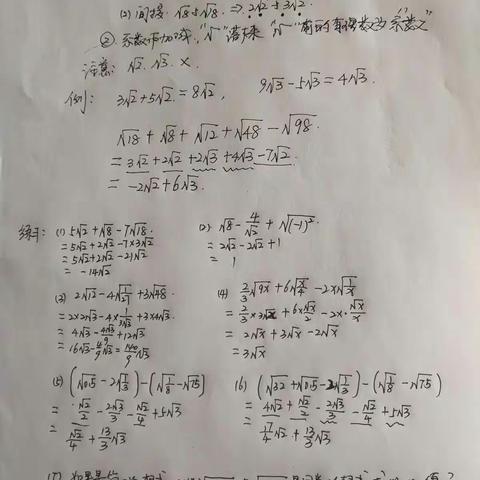 (2) 间接: √18与√8. ⇒ 2√2与3√2.
② 系数相加减, "√" 落下来 "√" 前的有理数为"系数"
注意: √2. √3. ×.
例: 3√2+5√2=8√2, 9√3-5√3=4√3.
√18+√8+√12+√48-√98.
=3√2+2√2+2√3+4√3-7√2.
=-2√2+6√3.
练习: (1) 5√2+√8-7√18.
=5√2+2√2-7×3√2
=5√2+2√2-21√2
=-14√2
(2) √8-4/√2+√(-1)².
=2√2-2√2+1
=1
(3) 2√12-4√(1/27)+3√48.
=2×2√3-4×1/(3√3)+3×4√3.
=4√3-4√3/9+12√3
=16√3-4/9√3=140/9√3
(4) 2/3√9x+6√(x/4)-2x√(1/x)
=2/3×3√x+6×√x/2-2x·√x/x
=2√x+3√x-2√x
=3√x
(5) (√0.5-2√(1/3))-(√(1/8)-√75)
=√2/2-2√3/3-√2/4+5√3
=√2/4+13/3√3
(6) (√32+√0.5-2√(1/3))-(√(1/8)-√75)
=4√2+√2/2-2√3/3-√2/4+5√3
=17/4√2+13/3√3